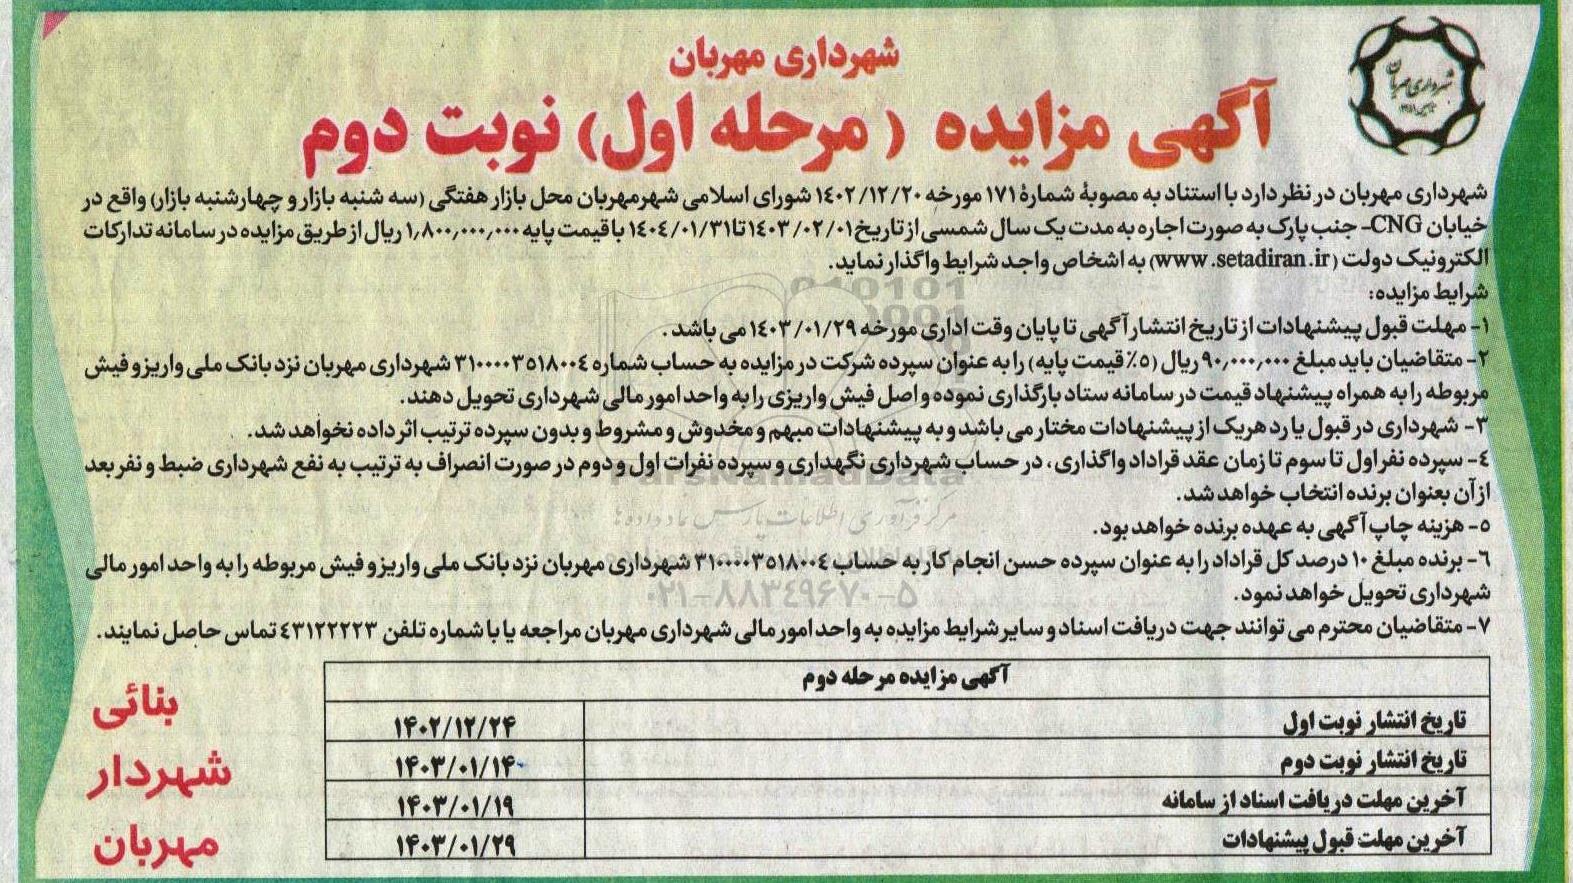 شهرداری مهربان
شهرداری مهربان
آگهی مزایده (مرحله اول) نوبت دوم
شهرداری مهربان در نظر دارد با استناد به مصوبۀ شمارۀ ۱۷۱ مورخه ۱۴۰۲/۱۲/۲۰ شورای اسلامی شهرمهربان محل بازار هفتگی (سه شنبه بازار و چهارشنبه بازار) واقع در
خیابان CNG- جنب پارک به صورت اجاره به مدت یک سال شمسی از تاریخ ۱۴۰۳/۰۲/۰۱ تا ۱۴۰۴/۰۱/۳۱ با قیمت پایه ۱,۸۰۰,۰۰۰,۰۰۰ ریال از طریق مزایده در سامانه تدارکات
الکترونیک دولت (www.setadiran.ir) به اشخاص واجد شرایط واگذار نماید.
شرایط مزایده:
۱- مهلت قبول پیشنهادات از تاریخ انتشار آگهی تا پایان وقت اداری مورخه ۱۴۰۳/۰۱/۲۹ می باشد.
۲- متقاضیان باید مبلغ ۹۰,۰۰۰,۰۰۰ ریال (۵٪ قیمت پایه) را به عنوان سپرده شرکت در مزایده به حساب شماره ۳۱۰۰۰۰۳۵۱۸۰۰۴ شهرداری مهربان نزد بانک ملی واریز و فیش
مربوطه را به همراه پیشنهاد قیمت در سامانه ستاد بارگذاری نموده و اصل فیش واریزی را به واحد امور مالی شهرداری تحویل دهند.
۳- شهرداری در قبول یا رد هریک از پیشنهادات مختار می باشد و به پیشنهادات مبهم و مخدوش و مشروط و بدون سپرده ترتیب اثر داده نخواهد شد.
۴- سپرده نفر اول تا سوم تا زمان عقد قراداد واگذاری، در حساب شهرداری نگهداری و سپرده نفرات اول و دوم در صورت انصراف به ترتیب به نفع شهرداری ضبط و نفر بعد
از آن بعنوان برنده انتخاب خواهد شد.
۵- هزینه چاپ آگهی به عهده برنده خواهد بود.
۶- برنده مبلغ ۱۰ درصد کل قراداد را به عنوان سپرده حسن انجام کار به حساب ۳۱۰۰۰۰۳۵۱۸۰۰۴ شهرداری مهربان نزد بانک ملی واریز و فیش مربوطه را به واحد امور مالی
شهرداری تحویل خواهد نمود.
۷- متقاضیان محترم می توانند جهت دریافت اسناد و سایر شرایط مزایده به واحد امور مالی شهرداری مهربان مراجعه یا با شماره تلفن ۴۳۱۲۲۲۲۳ تماس حاصل نمایند.
آگهی مزایده مرحله دوم
تاریخ انتشار نوبت اول ۱۴۰۲/۱۲/۲۴
تاریخ انتشار نوبت دوم ۱۴۰۳/۰۱/۱۴
آخرین مهلت دریافت اسناد از سامانه ۱۴۰۳/۰۱/۱۹
آخرین مهلت قبول پیشنهادات ۱۴۰۳/۰۱/۲۹
بنائی
شهردار
مهربان
ParsNamadData
مرکز فرآوری اطلاعات پارس نماد داده ها
۰۲۱-۸۸۳۴۹۶۷۰-۵